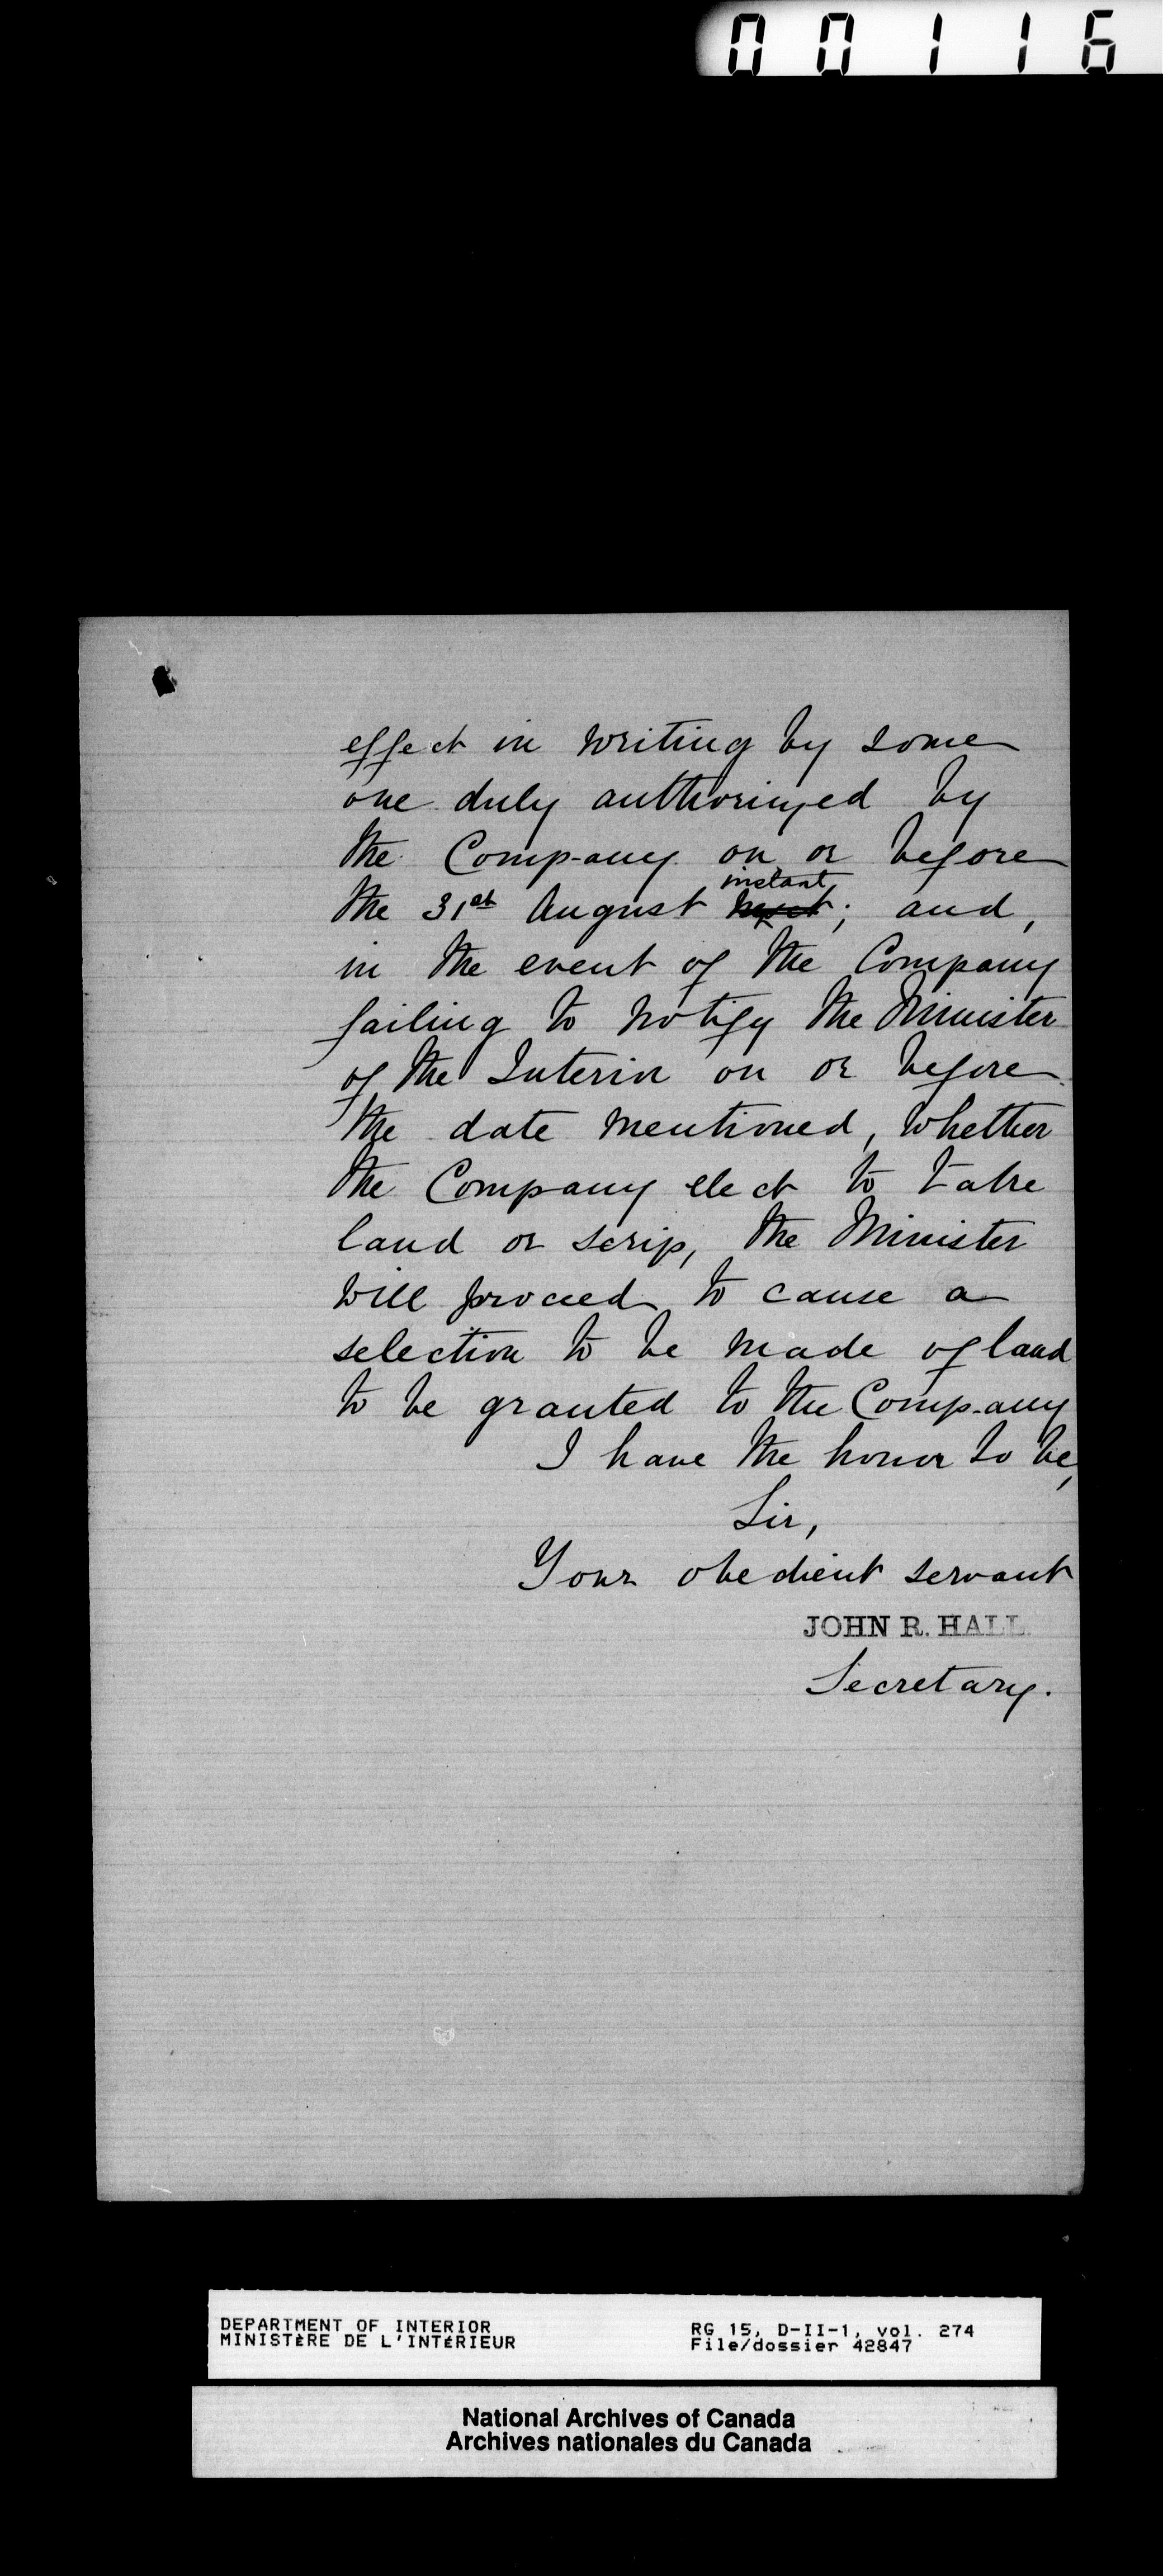 00116
effect in writing by some
one duly authorized by
the Company on or before
instant
the 31st August next; and,
in the event of the Company
failing to notify the Minister
of the Interior on or before
the date mentioned, whether
the Company elect to take
land or scrip, the Minister
will proceed to cause a
selection to be made of land
to be granted to the Company
I have the honor to be,
Sir,
Your obedient servant
JOHN R. HALL.
Secretary.
DEPARTMENT OF INTERIOR RG 15, D-II-1, vol. 274
MINISTÈRE DE L'INTÉRIEUR File/dossier 42847
National Archives of Canada
Archives nationales du Canada